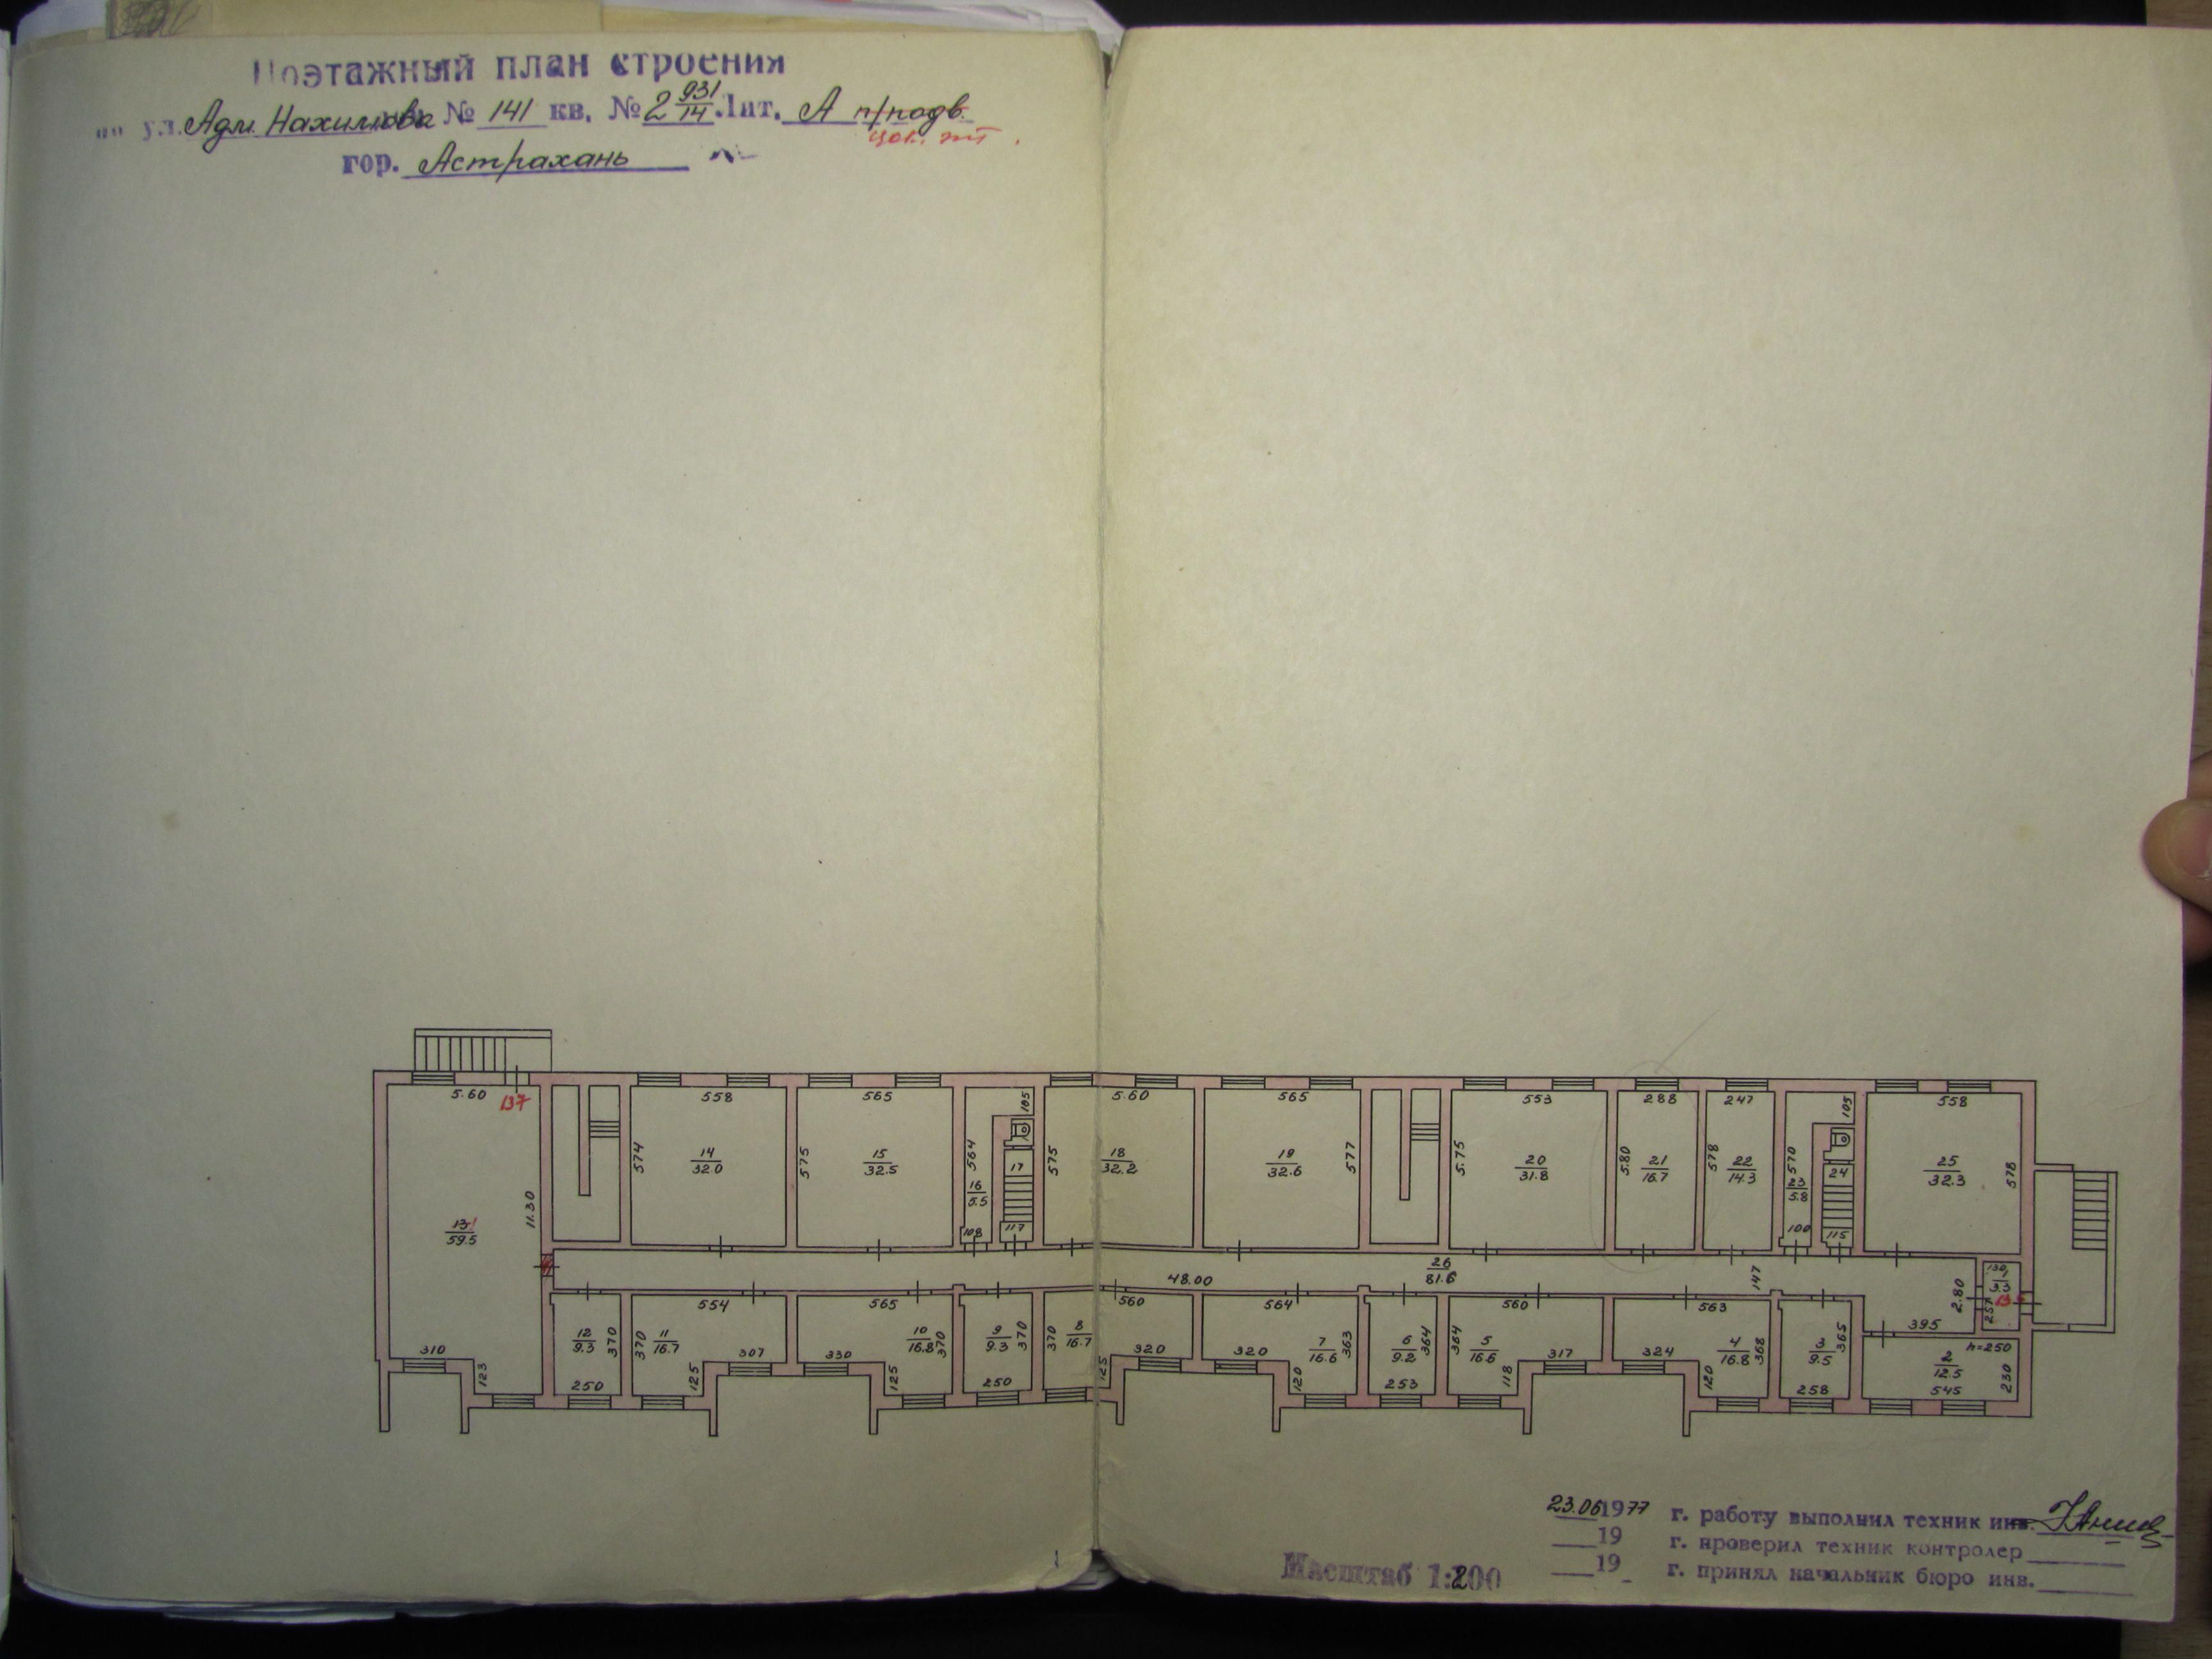 Поэтажный план строения
по ул. Адм. Нахимова № 141 кв. № 2 931/14 Лит. А п/подв.
цок. эт.
гор. Астрахань
5.60 137 558 565 105 5.60 565 553 288 247 105 558
574 14 32.0 575 15 32.5 564 16 5.5 17 575 18 32.2 19 32.6 577 5.75 20 31.8 5.80 21 16.7 578 22 14.3 570 23 5.8 24 25 32.3 578
11.30 13 59.5 108 117 100 115
48.00 26 81.6 147 2.80 130 1 3.3 257
554 565 560 564 560 563 395
310 123 12 9.3 370 250 370 11 16.7 307 125 330 10 16.8 370 125 9 9.3 370 250 370 8 16.7 125 320 320 7 16.6 363 120 6 9.2 364 253 364 5 16.6 317 118 324 4 16.8 368 120 3 9.5 365 258 h=250 2 12.5 230 545
23.06 1977 г. работу выполнил техник инв.
19 г. проверил техник контролер
19 г. принял начальник бюро инв.
Масштаб 1:200